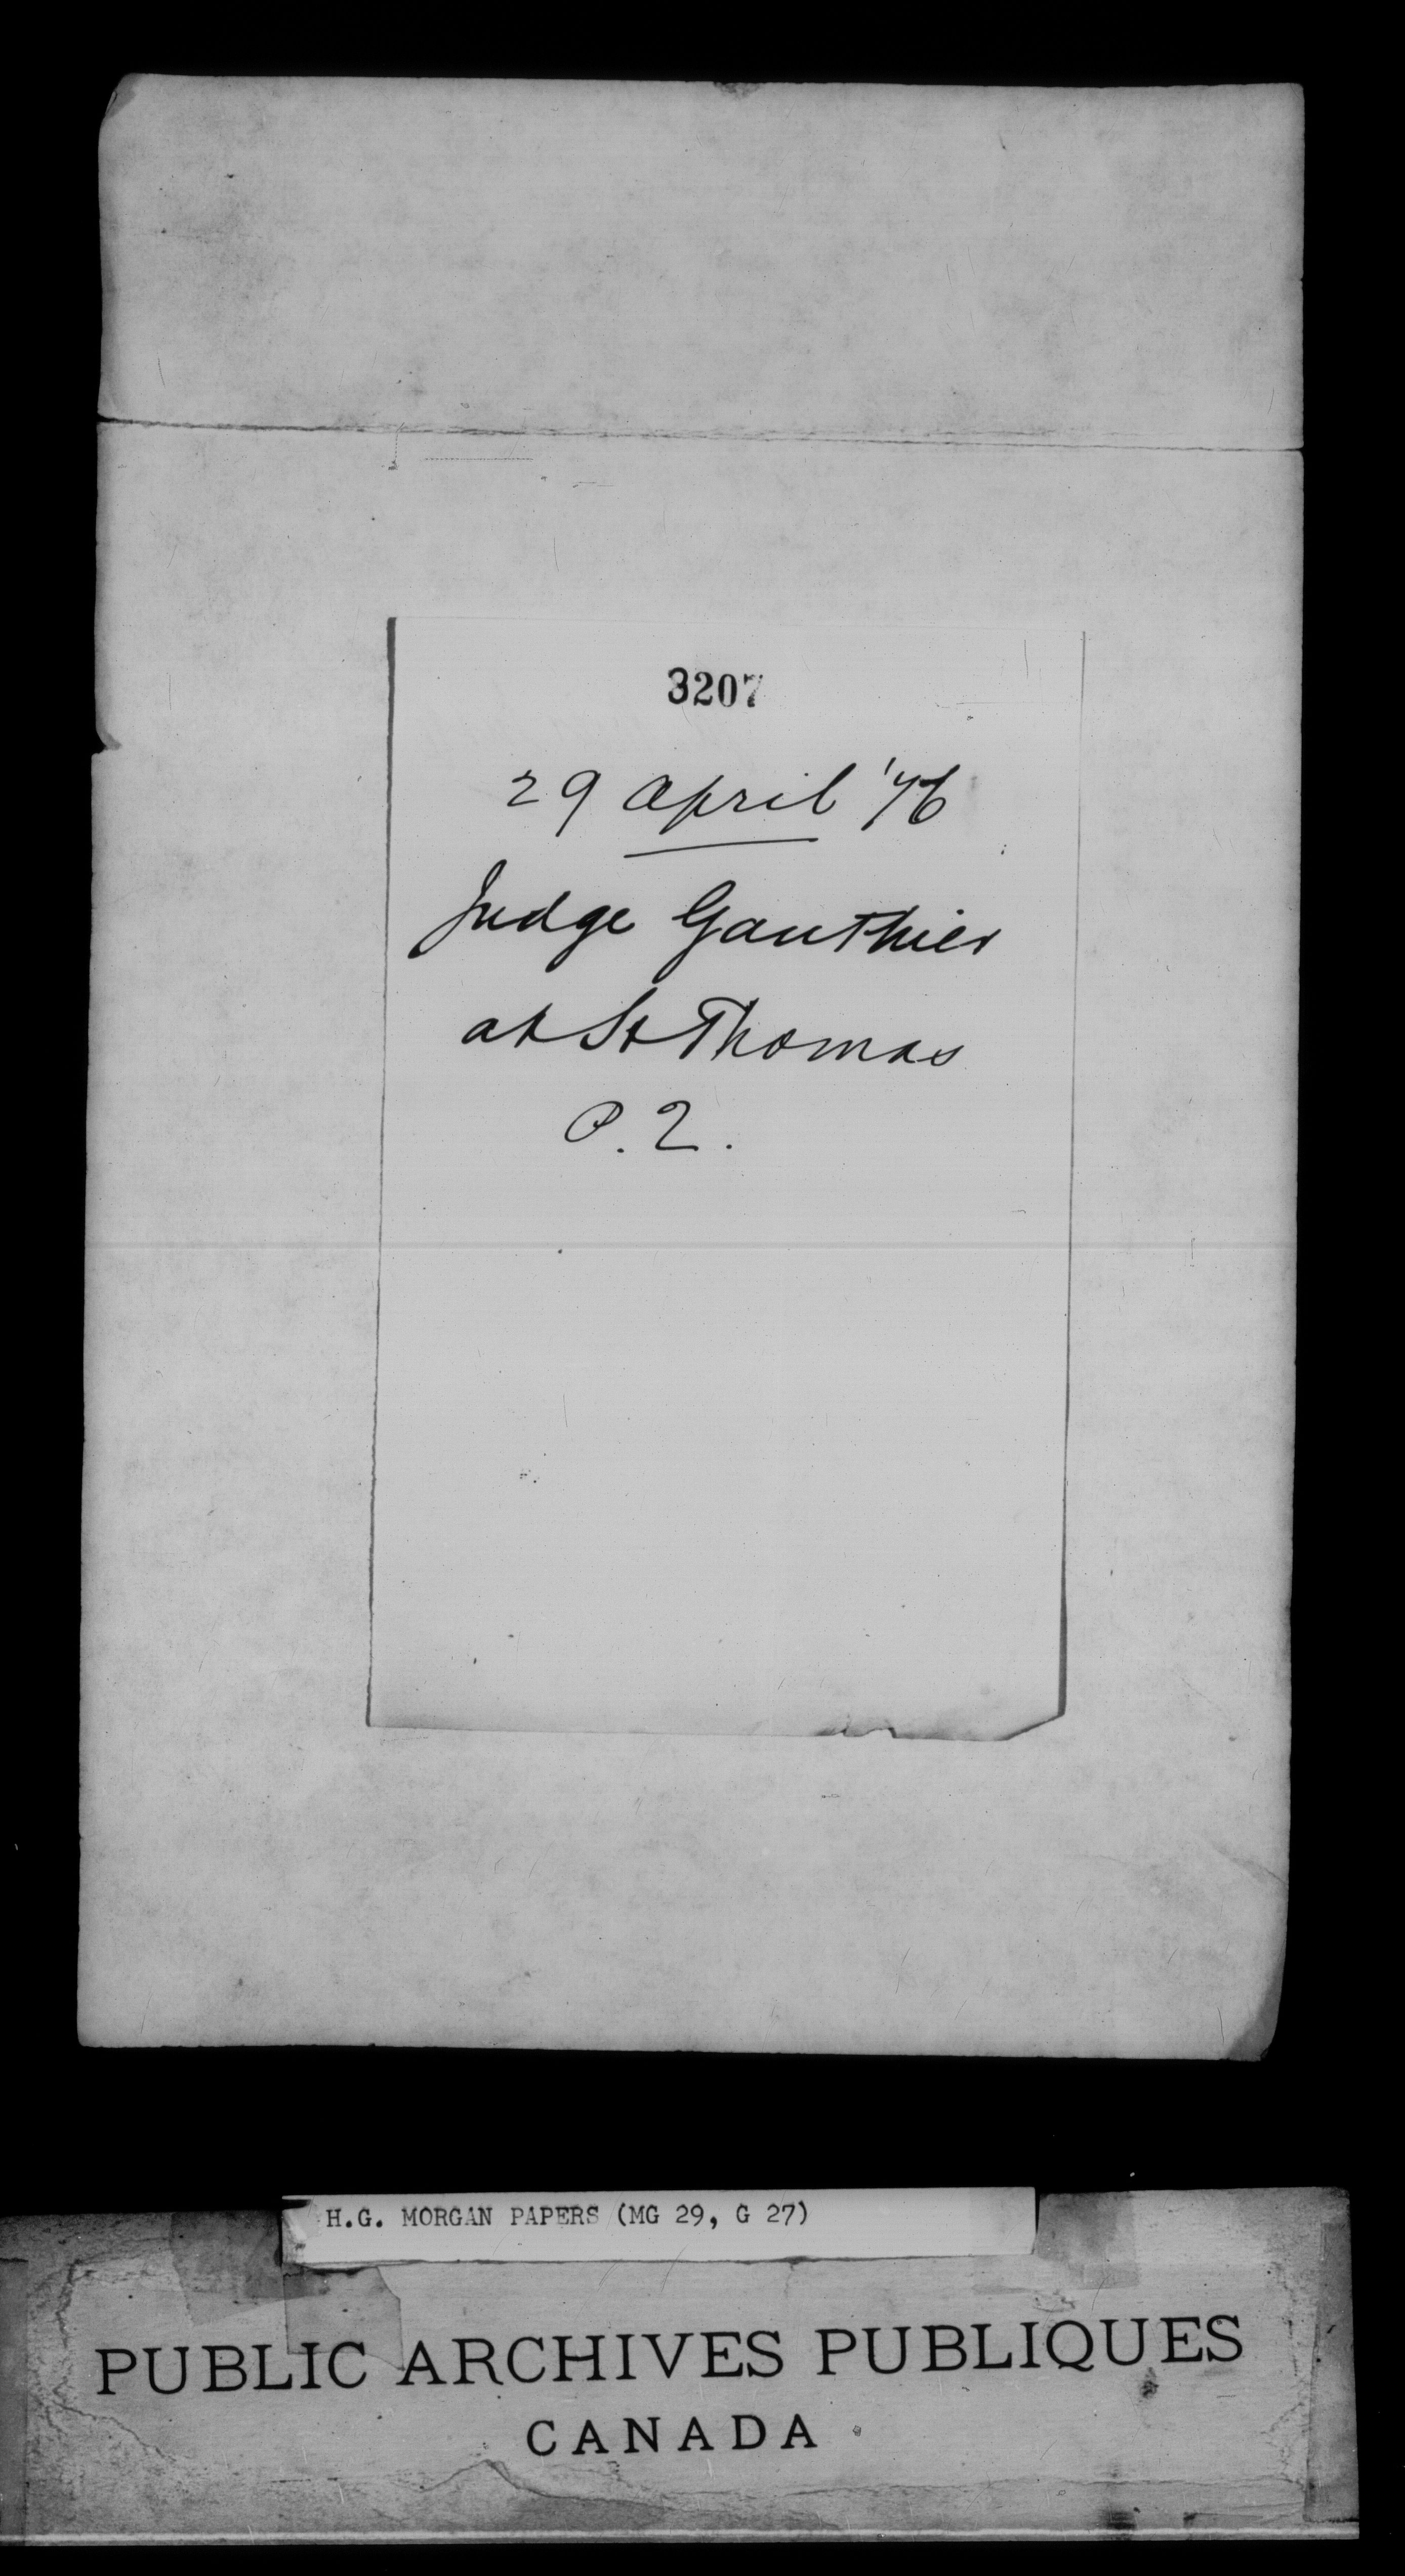 3207
29 April '76
Judge Gauthier
at St Thomas
P. Q.
H.G. MORGAN PAPERS (MG 29, G 27)
PUBLIC ARCHIVES PUBLIQUES
CANADA